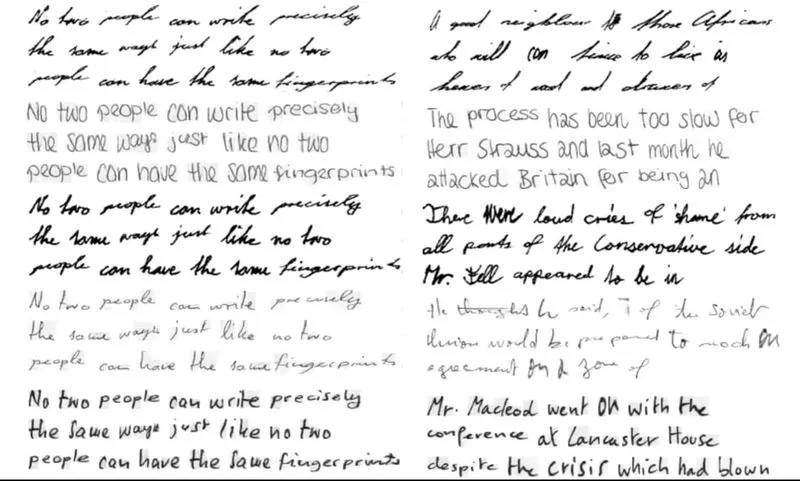 No two people can write precisely
the same ways just like no two
people can have the same fingerprints
No two people can write precisely
the same ways just like no two
people can have the same fingerprints
No two people can write precisely
the same ways just like no two
people can have the same fingerprints
No two people can write precisely
the same ways just like no two
people can have the same fingerprints
No two people can write precisely
the same ways just like no two
people can have the same fingerprints
A good neighbour to those Africans
who will can time to live as
hewers of wood and drawers of
The process has been too slow for
Herr Strauss and last month he
attacked Britain for being an
There were loud cries of 'shame' from
all parts of the Conservative side
Mr. Fell appeared to be in
He thought he said, of the Soviet
Union would be prepared to reach an
agreement on a zone of
Mr. Macleod went on with the
conference at Lancaster House
despite the crisis which had blown